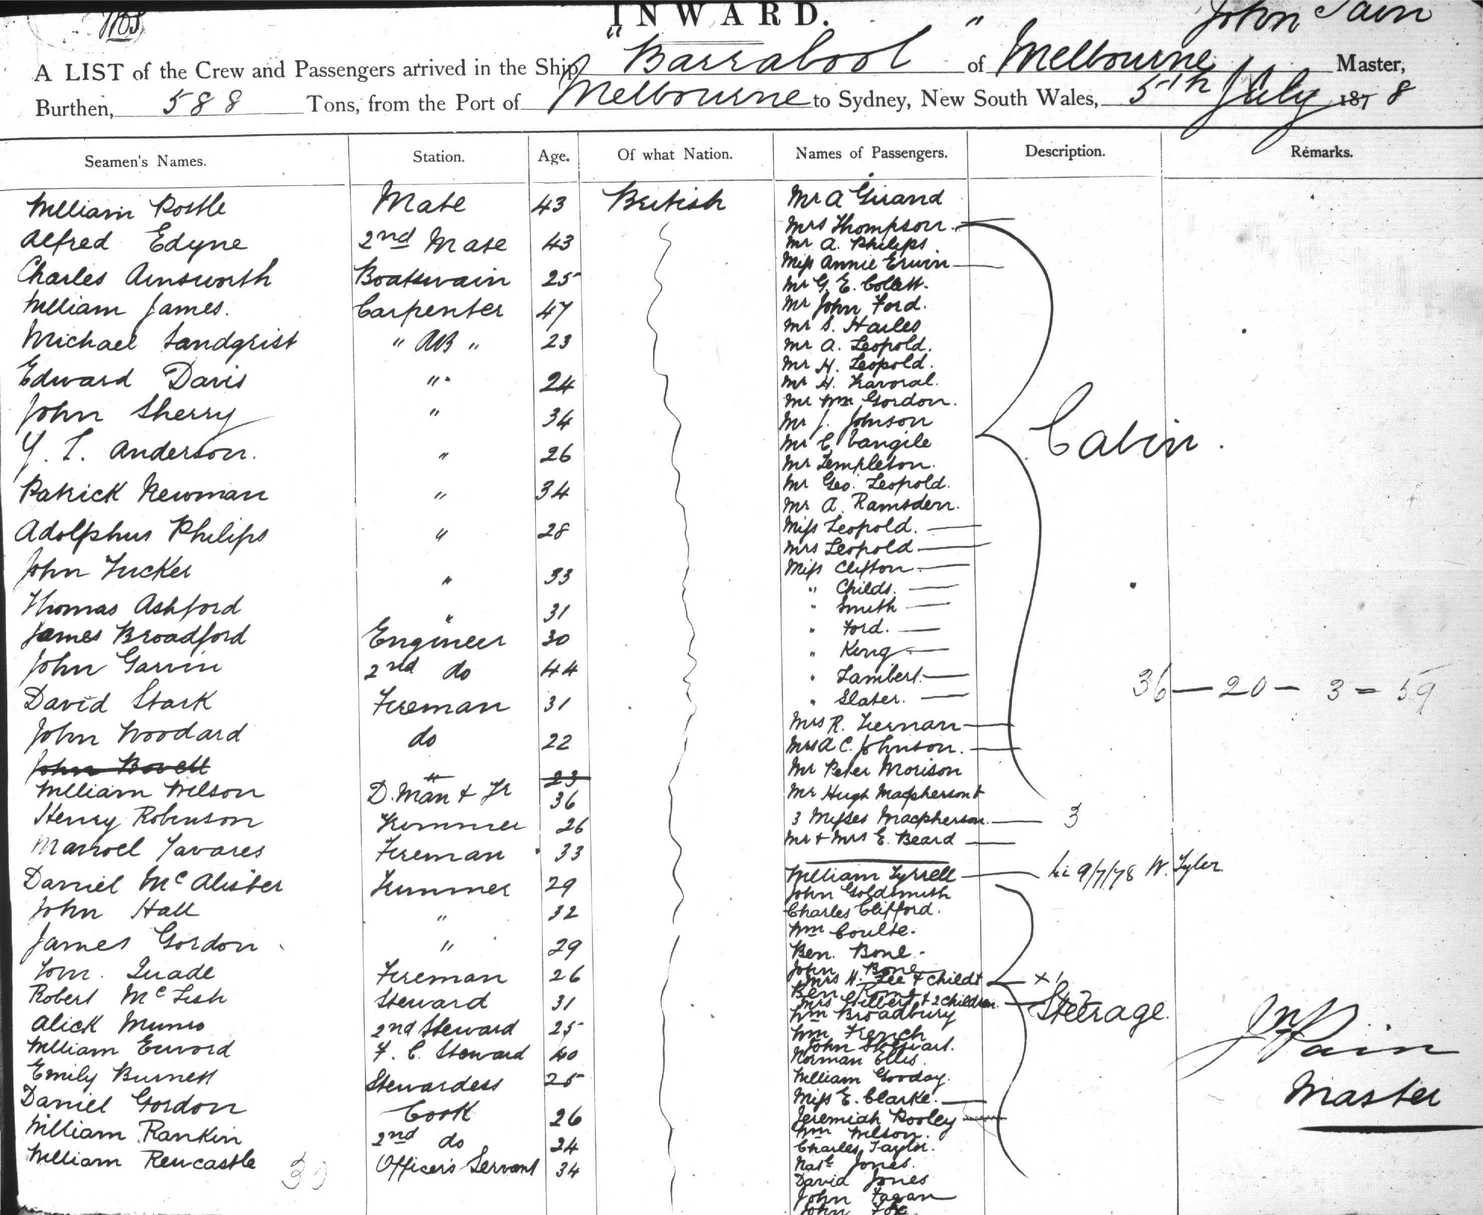 INWARD.
John Pain
A LIST of the Crew and Passengers arrived in the Ship "Barrabool" of Melbourne Master,
Burthen, 588 Tons, from the Port of Melbourne to Sydney, New South Wales, 5th July 1878
Seamen's Names. Station. Age. Of what Nation. Names of Passengers. Description. Remarks.
William Postle Mate 43 British
Alfred Edyne 2nd Mate 43
Charles Ainsworth Boatswain 25
William James. Carpenter 47
Michael Sandqrist " AB " 23
Edward Davis " 24
John Sherry " 34
Anderson. " 26
Patrick Newman " 34
Adolphus Philips " 28
John Tucker " 33
Thomas Ashford " 31
James Broadford Engineer 30
John Garvin 2nd do 44
David Stark Fireman 31
John Woodard do 22
John Bovell " 23
William Wilson D. Man & Fr 36
Henry Robinson Trimmer 26
Manoel Tavares Fireman 33
Daniel McAlister Trimmer 29
John Hall " 32
James Gordon " 29
Quade Fireman 26
Robert McLish Steward 31
Alick Munro 2nd Steward 25
William F. C. Steward 40
Emily Burnett Stewardess 25
Daniel Gordon Cook 26
William Rankin 2nd do 24
William Rencastle Officer's Servant 34
Mr A Girand
Mrs Thompson.
Mr A. Philips.
Miss Annie Erwin
Mr G. E. Colett.
Mr John Ford.
Mr S. Hailes
Mr A. Leopold.
Mr H. Leopold.
Mr H.
Mr Wm Gordon.
Mr J. Johnson
Mr C.
Mr Templeton.
Mr Geo. Leopold.
Mr A. Ramsden.
Miss Leopold.
Mrs Leopold
Miss Clifton
" Childs.
" Smith
" Ford.
" King
" Lambert.
" Slater.
Mrs R. Tiernan
Mrs A C. Johnson.
Mr Peter Morison
Mr Hugh Macpherson &
3 Misses Macpherson. 3
Mr & Mrs E. Beard
Cabin.
36 — 20 — 3 = 59
William Tyrrell 9/7/78 W. Tyler
John Goldsmith
Charles Clifford.
Wm Coulte.
Ben. Bone.
John Bone
Mrs H. Lee & child
Ben
Mrs Gilbert & 2 children
Wm Broadbury
Wm French
John Stewart.
Norman Ellis.
William Gooday.
Miss E. Clarke.
Jeremiah Rooley
Wm Wilson.
Charles Taylor.
Natl Jones.
David Jones
John Fagan
John Fox
Steerage.
Jn Pain
Master